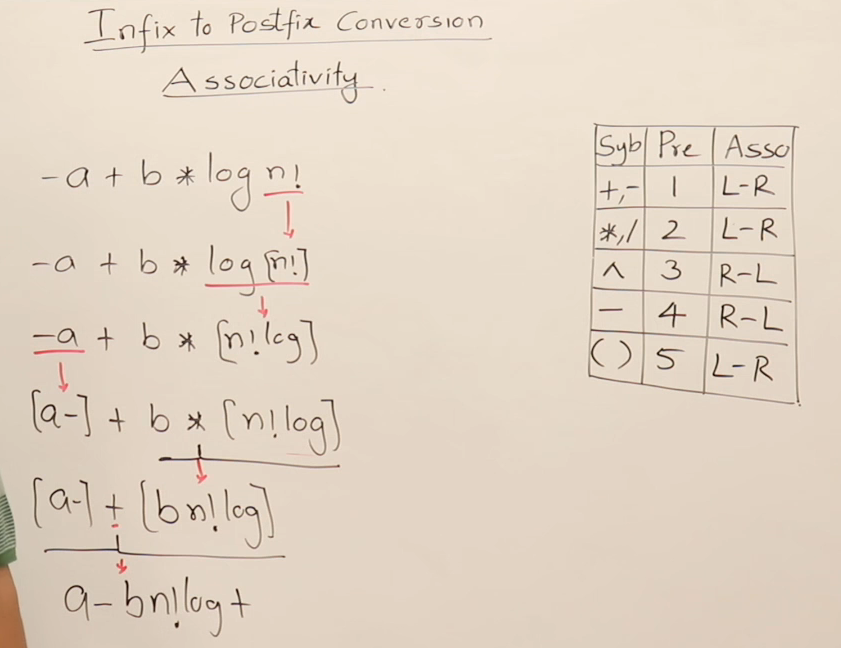 Infix to Postfix Conversion
Associativity.
-a + b * log n!
-a + b * log [n!]
-a + b * [n! log]
[a-] + b * [n! log]
[a-] + [bn! log]
a- bn! log +
Syb Pre Asso
+,- 1 L-R
*,/ 2 L-R
^ 3 R-L
- 4 R-L
( ) 5 L-R